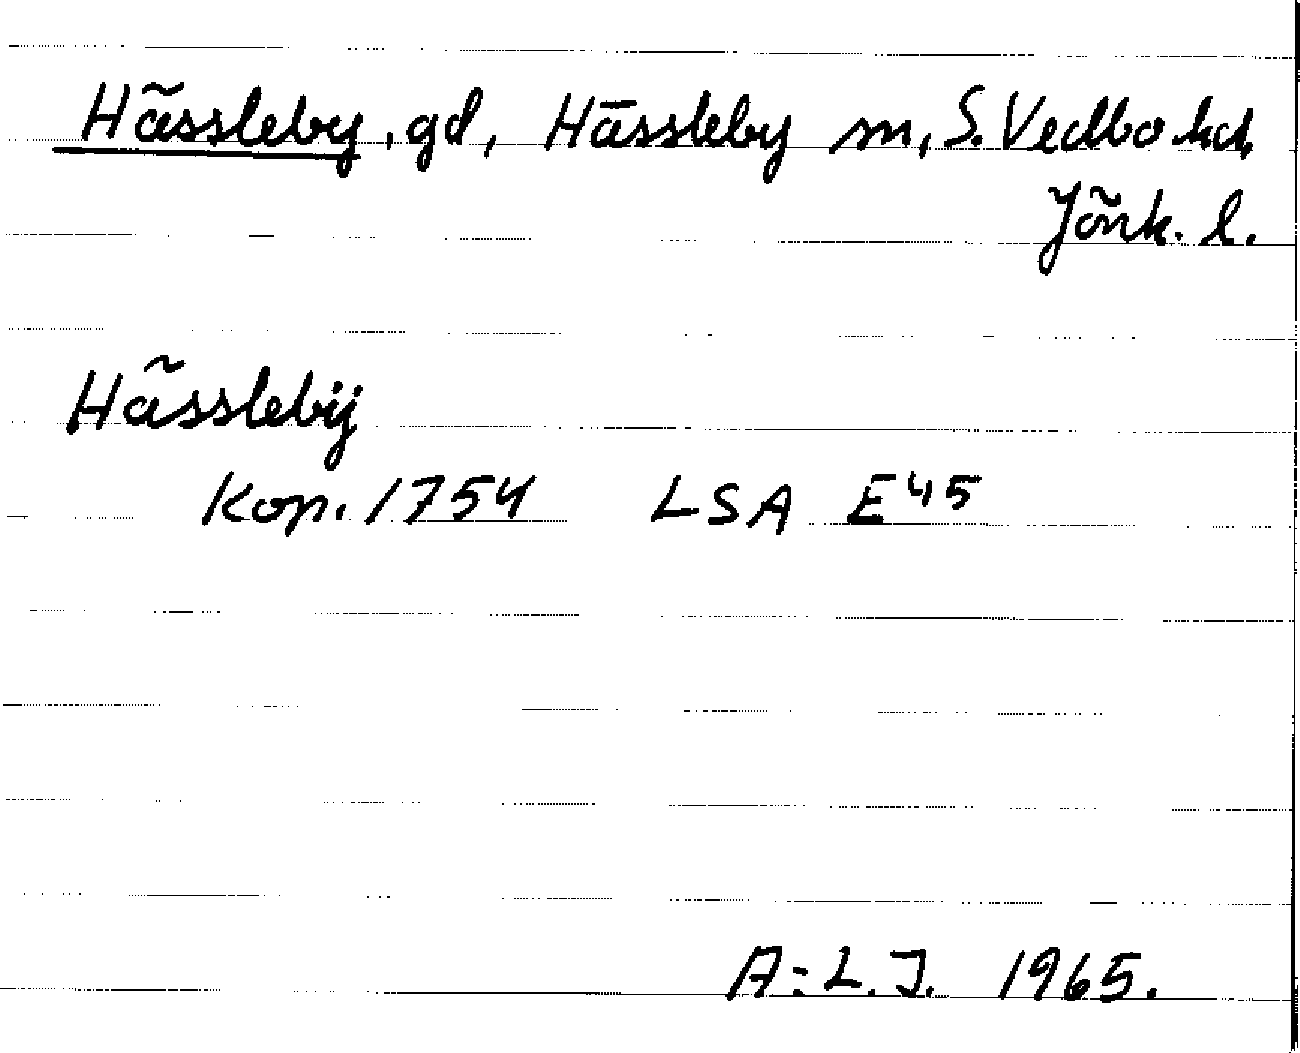 Hässleby, gd, Hässleby sn, S. Vedbo hd,
Jönk. l.
Hässlebÿ
Kop. 1754 LSA E45
A:L.J. 1965.